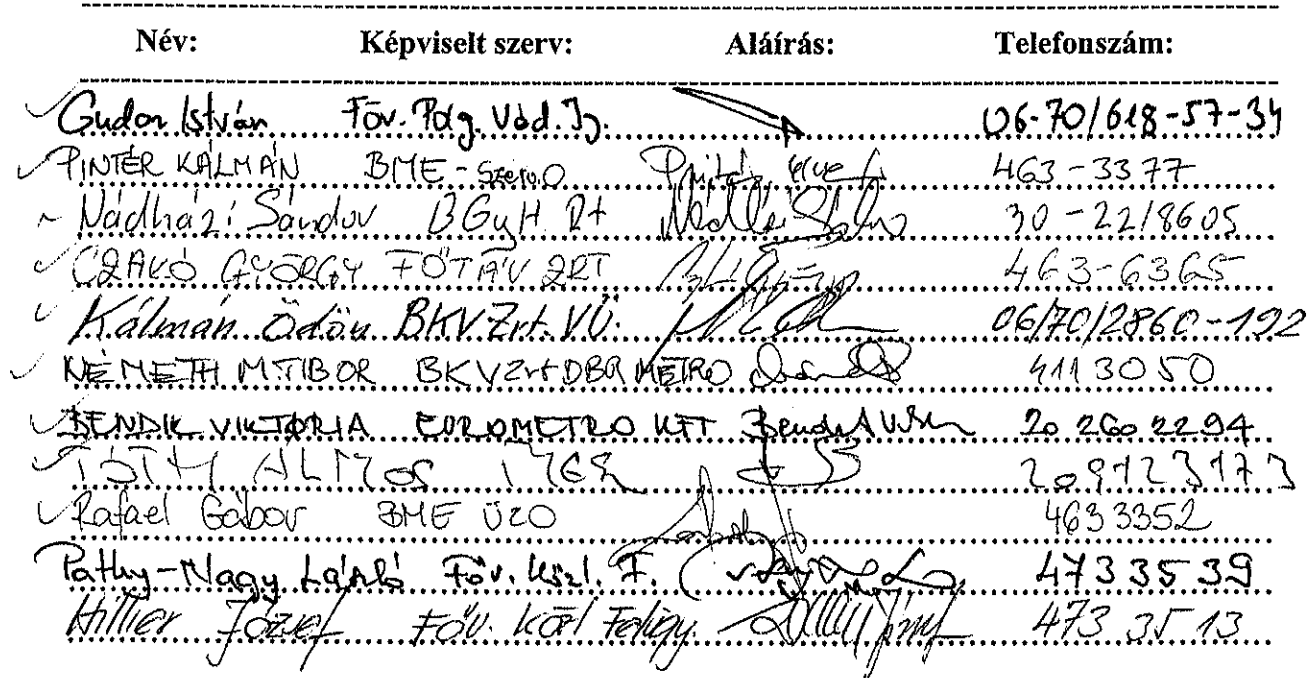 Név: Képviselt szerv: Aláírás: Telefonszám:
Gudor István Főv. Polg. Véd. Ig. 06-70/618-57-34
PINTÉR KÁLMÁN BME - 463-3377
Nádházi Sándor BGyH Rt 30-22/8605
CZAKÓ GYÖRGY FŐTÁV ZRT 463-6365
Kálmán Ödön BKV Zrt. VÜ. 06/70/2860-192
NÉMETH M TIBOR BKV Zrt DBR METRO 4113050
BENDIK VIKTÓRIA EUROMETRO KFT 20 260 2294
TÓTH ÁLMOS 209123173
Rafael Gábor BME ÜZO 4633352
Pathy-Nagy László Főv. Közl. F. 473 35 39
Hillier József Főv. Közl Felügy. 473 35 13